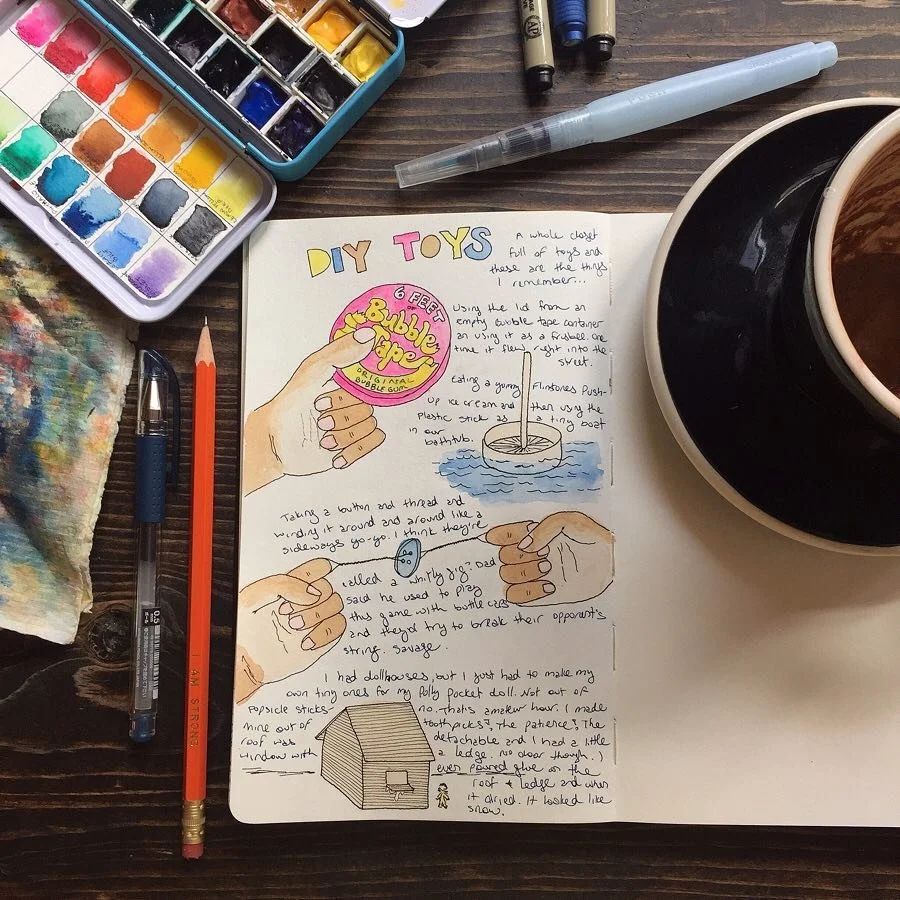 DIY TOYS
A whole closet
full of toys and
these are the things
I remember...
6 FEET
OF
Bubble
Tape
ORIGINAL
BUBBLE GUM
Using the lid from an
empty bubble tape container
an using it as a frisbee. One
time it flew right into the
street.
Eating a yummy Flintstones Push-
Up ice cream and then using the
plastic stick as a tiny boat
in our
bathtub.
Taking a button and thread and
winding it around and around like a
sideways yo-yo. I think they're
called a whirly jig? Dad
said he used to play
this game with bottle caps
and they'd try to break their opponent's
string. Savage.
I had dollhouses, but I just had to make my
own tiny ones for my Polly Pocket doll. Not out of
popsicle sticks- no. That's amateur hour. I made
mine out of toothpicks! The patience! The
roof was detachable and I had a little
window with a ledge. No door though. I
even poured glue on the
roof + ledge and when
it dried. It looked like
snow.
I AM STRONG
0.5